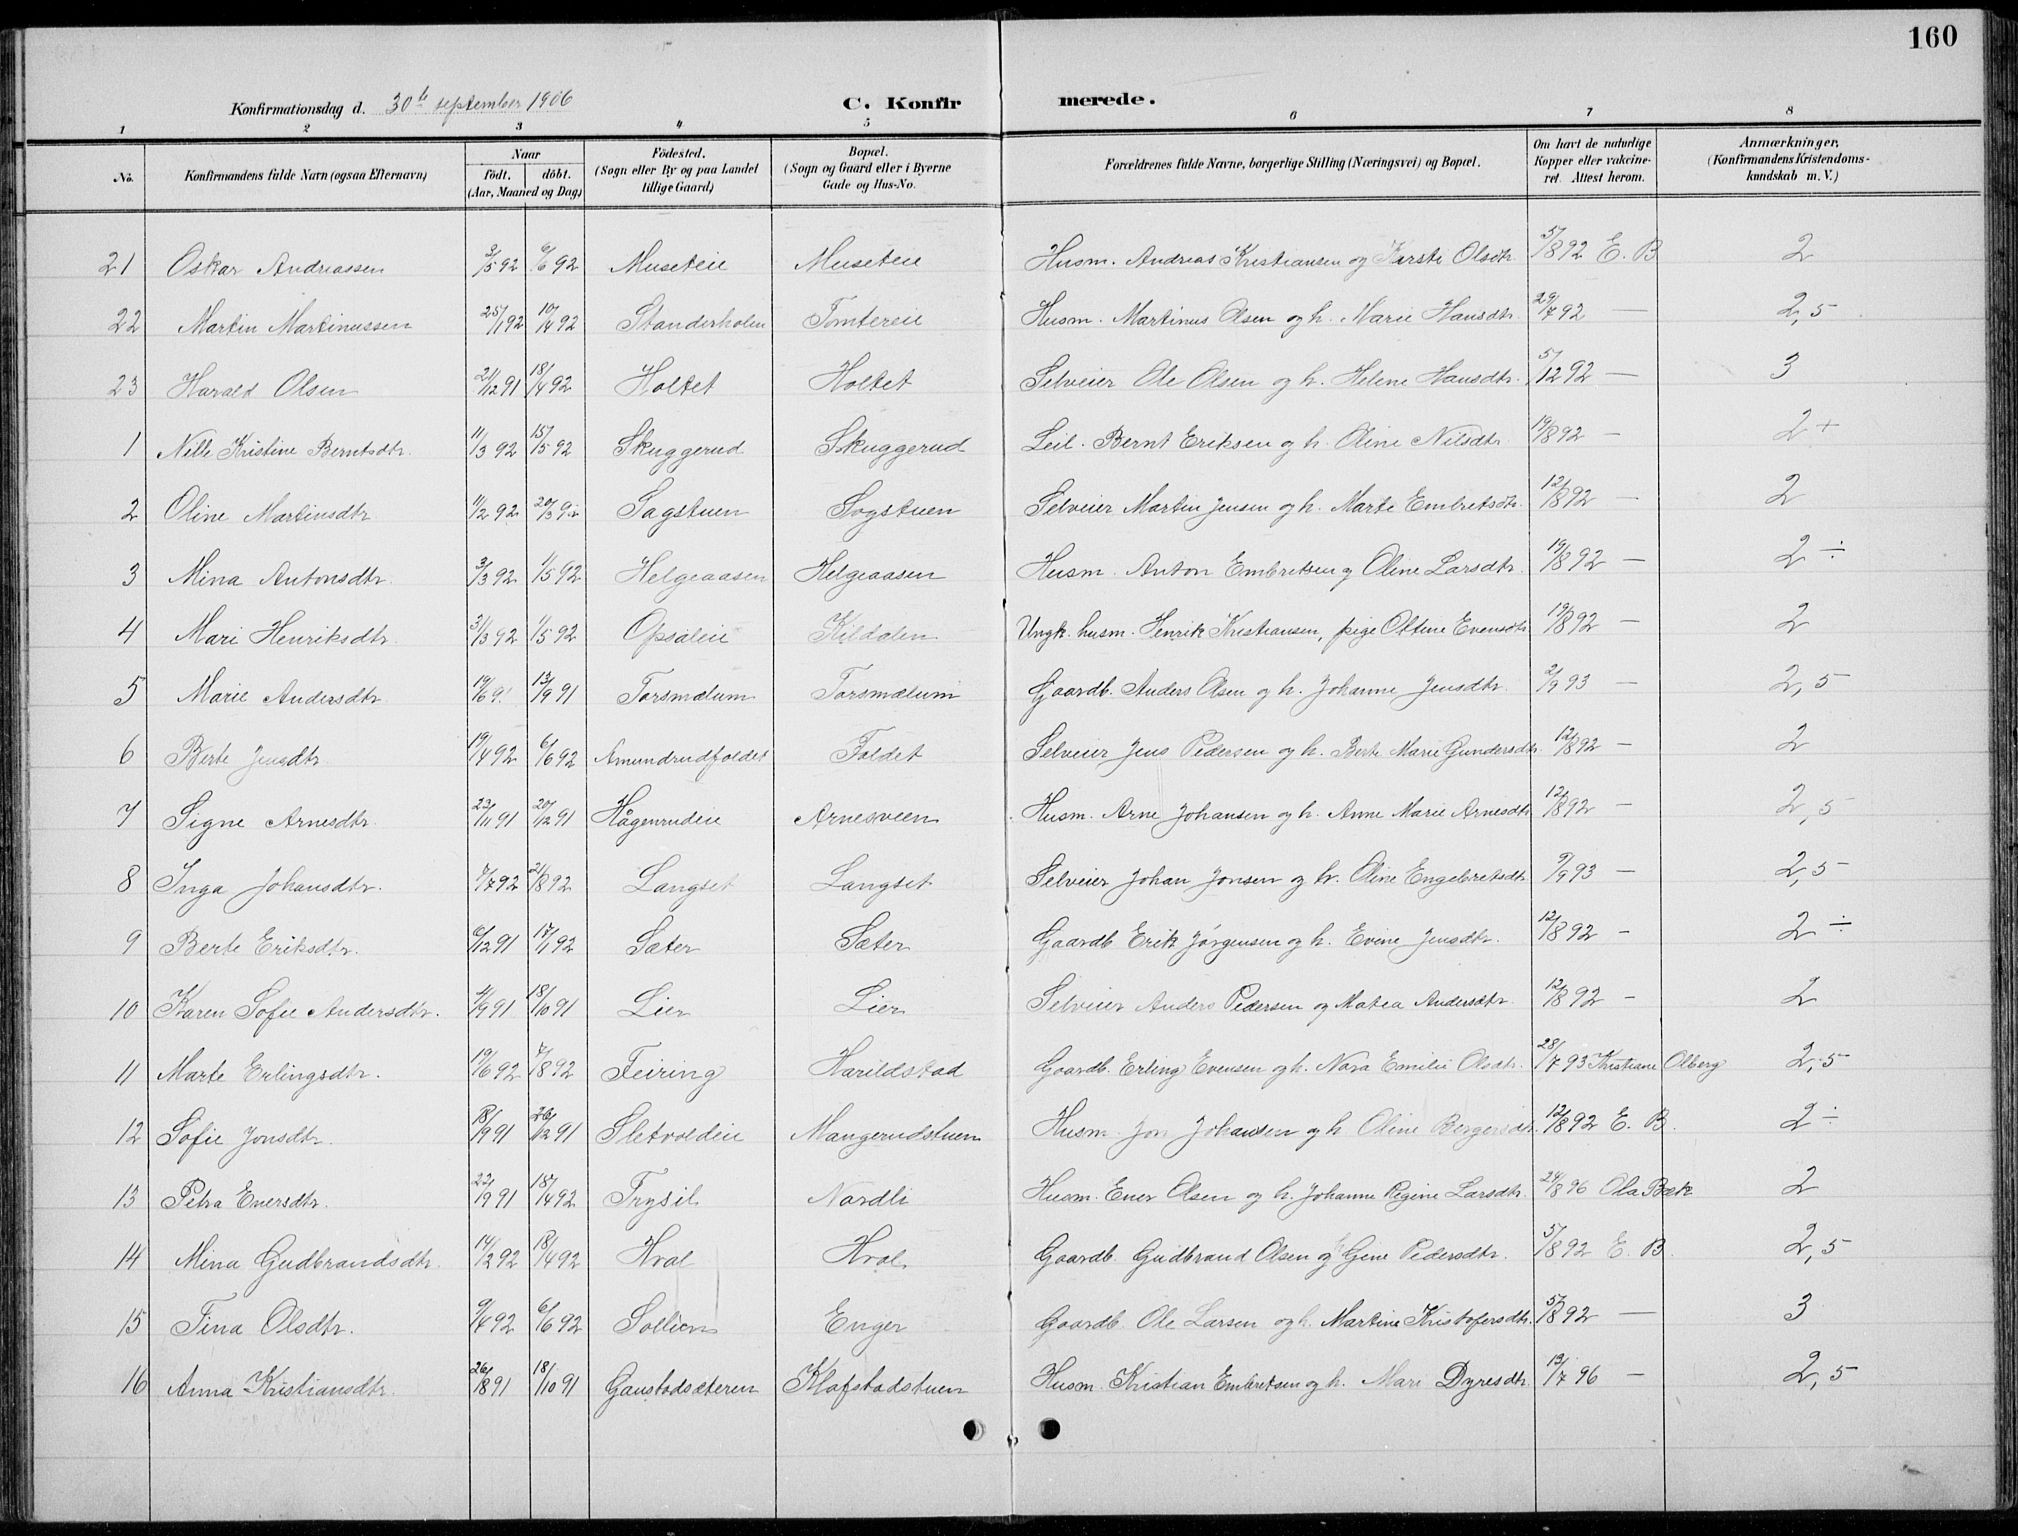 160
Konfirmationsdag d. 30te september 1906 C. Konfirmerede.
1 2 3 4 5 6 7 8
No. Konfirmandens fulde Navn (ogsaa Efternavn) Naar födt. döbt. (Aar, Maaned og Dag) Födested. (Sogn eller By og paa Landet tillige Gaard) Bopæl. (Sogn og Gaard eller i Byerne Gade og Hus-No. Forældrenes fulde Navne, borgerlige Stilling (Næringsvei) og Bopæl. Om havt de naturlige Kopper eller vakcineret. Attest herom. Anmærkninger. (Konfirmandens Kristendomskundskab m. V.)
21 Oskar Andreassen 3/5 92 6/6 92 Museteie Museteie Husm. Andreas Kristiansen og Kirsti Olsdtr. 5/8 92 E. B 2
22 Martin Martinussen 25/1 92 10/4 92 Standerholen Tomtereie Husm. Martinus Olsen og h. Marie Hansdtr. 29/7 92 — 2,5
23 Harald Olsen 21/12 91 18/4 92 Holtet Holtet Selveier Ole Olsen og h. Helene Hansdtr. 5/12 92 — 3
1 Nille Kristine Berntsdtr. 11/3 92 15/5 92 Skuggerud Skuggerud Leil. Bernt Eriksen og h. Oline Nilsdtr. 19/8 92 — 2+
2 Oline Martinsdtr 11/2 92 20/3 92 Sagstuen Sogstuen Selveier Martin Jensen og h. Marte Embretsdtr. 12/8 92 — 2
3 Mina Antonsdtr. 3/3 92 1/5 92 Helgeaasen Helgeaasen Husm. Anton Embretsen og Oline Larsdtr. 19/8 92 — 2 ÷
4 Mari Henriksdtr. 31/3 92 1/5 92 Opsaleie Kildalen Ungk. husm. Henrik Kristiansen, pige Oltine Evensdtr 19/8 92 — 2
5 Marie Andersdtr 19/6 91 13/9 91 Torsmælum Torsmælum Gaardb. Anders Olsen og h. Johanne Jensdtr. 2/9 93 — 2,5
6 Berte Jensdtr 19/4 92 6/6 92 Amundrudfoldet Foldet Selveier Jens Pedersen og h. Berte Marie Gundersdtr. 12/8 92 — 2
7 Signe Arnesdtr. 23/11 91 20/12 91 Hågenrudeie Arnesveen Husm. Arne Johansen og h. Anne Marie Arnesdtr 12/8 92 — 2,5
8 Inga Johansdtr. 7/7 92 21/8 92 Langset Langset Selveier Johan Jonsen og h. Oline Engebretsdtr 9/9 93 — 2,5
9 Berte Eriksdtr. 6/12 91 17/1 92 Sæter Sæter Gaardb Erik Jörgensen og h. Evine Jensdtr. 12/8 92 — 2 ÷
10 Karen Sofie Andersdtr. 4/9 91 18/10 91 Lier Lier Selveier Anders Pedersen og Matea Andersdtr. 12/8 92 — 2
11 Marte Erlingsdtr. 19/6 92 7/8 92 Feiring Harildstad Gaardb. Erling Evensen og h. Nora Emilie Olsdtr. 28/7 93 Kristiane Olberg 2,5
12 Sofie Jonsdtr. 18/9 91 26/12 91 Sletvoldeie Mangerudstuen Husm. Jon Johansen og h Oline Bergersdtr. 12/8 92 E. B. 2 ÷
13 Petra Enersdtr. 22/9 91 18/4 92 Trysil Nordli Husm. Ener Olsen og h. Johanne Regine Larsdtr. 24/8 96 Ola Bæk 2
14 Mina Gudbrandsdtr. 14/2 92 18/4 92 Hval Hval Gaardb. Gudbrand Olsen og Gine Pedersdtr. 5/8 92 E. B. 2,5
15 Tina Olsdtr. 9/4 92 6/6 92 Sollien Enger Gaardb. Ole Larsen og h. Martine Kristofersdtr. 5/8 92 — 3
16 Anna Kristiansdtr. 26/8 91 18/10 91 Gaustadsæteren Klofstadstuen Husm. Kristian Embretsen og h. Mari Dyresdtr. 13/7 96 — 2,5